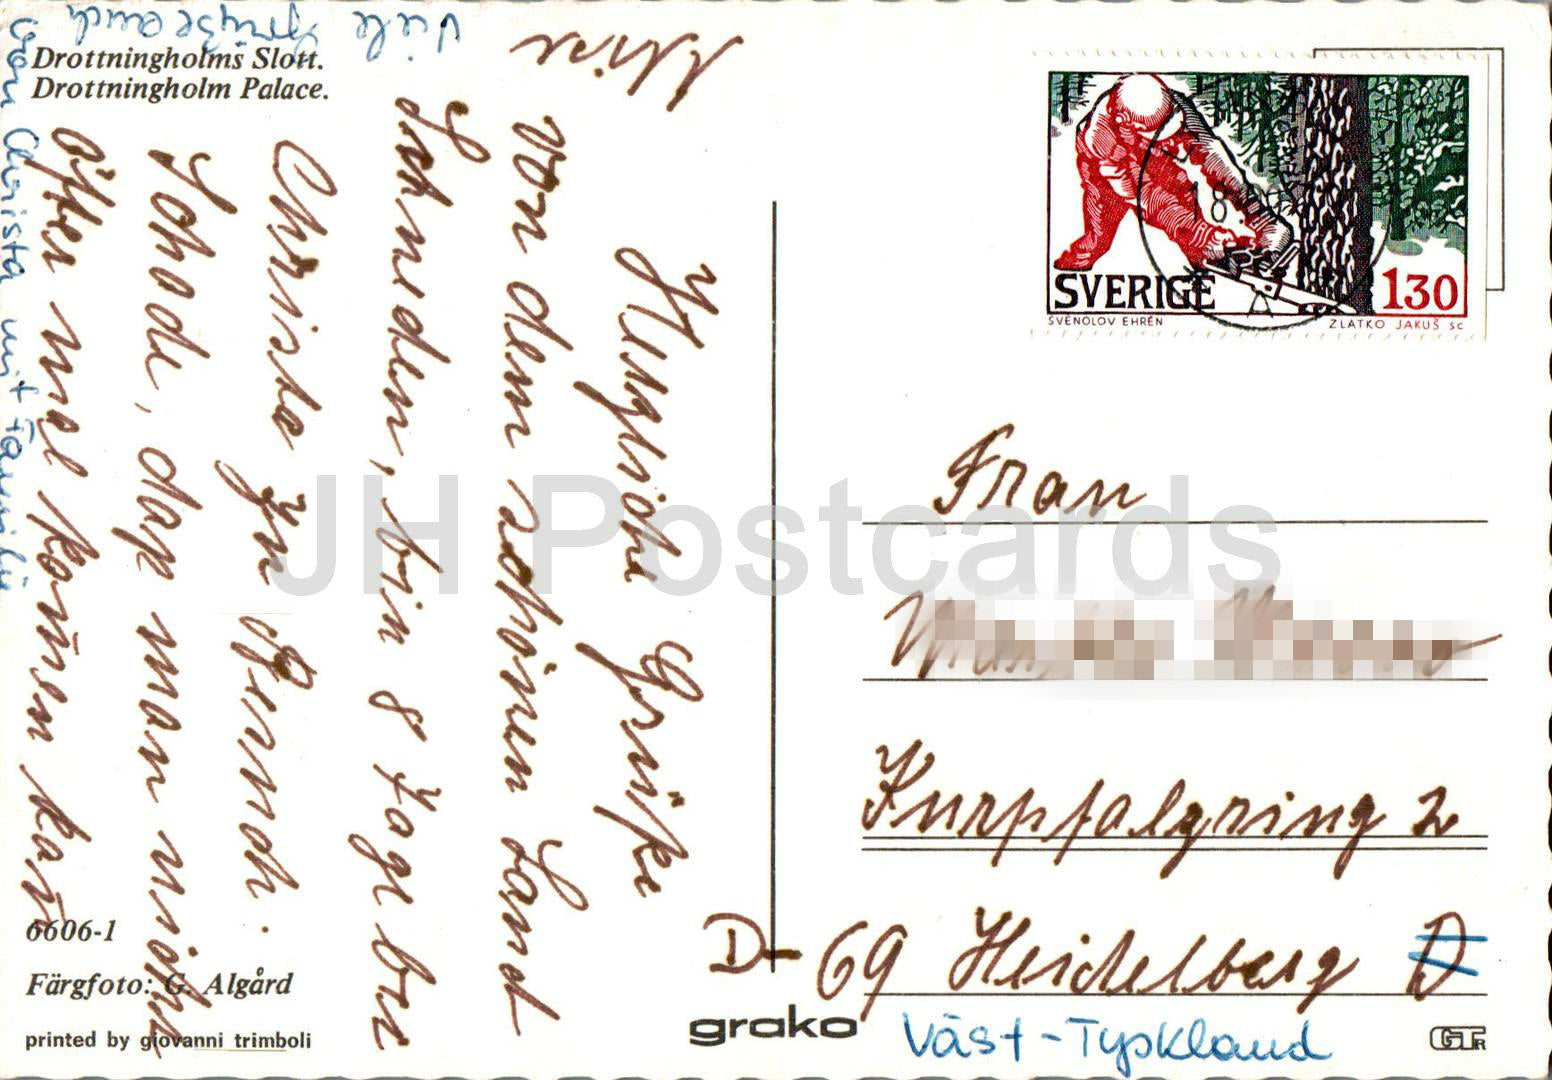 Drottningholms Slott.
Drottningholm Palace.
Herzliche Grüße
von dem schönen Land
Schweden, bin 8 Tage bei
Christa zu Besuch.
Schade, daß man nicht
öfter mal kommen kann
Viele
Grüße auch
von Christa mit Familie
6606-1
Färgfoto: G. Algård
printed by giovanni trimboli
grako
SVERIGE 130
SVENOLOV EHRÉN ZLATKO JAKUŠ SC
18
A
Frau
Kurpfalzring 2
D-69 Heidelberg D
Väst-Tyskland
GTR
JH Postcards